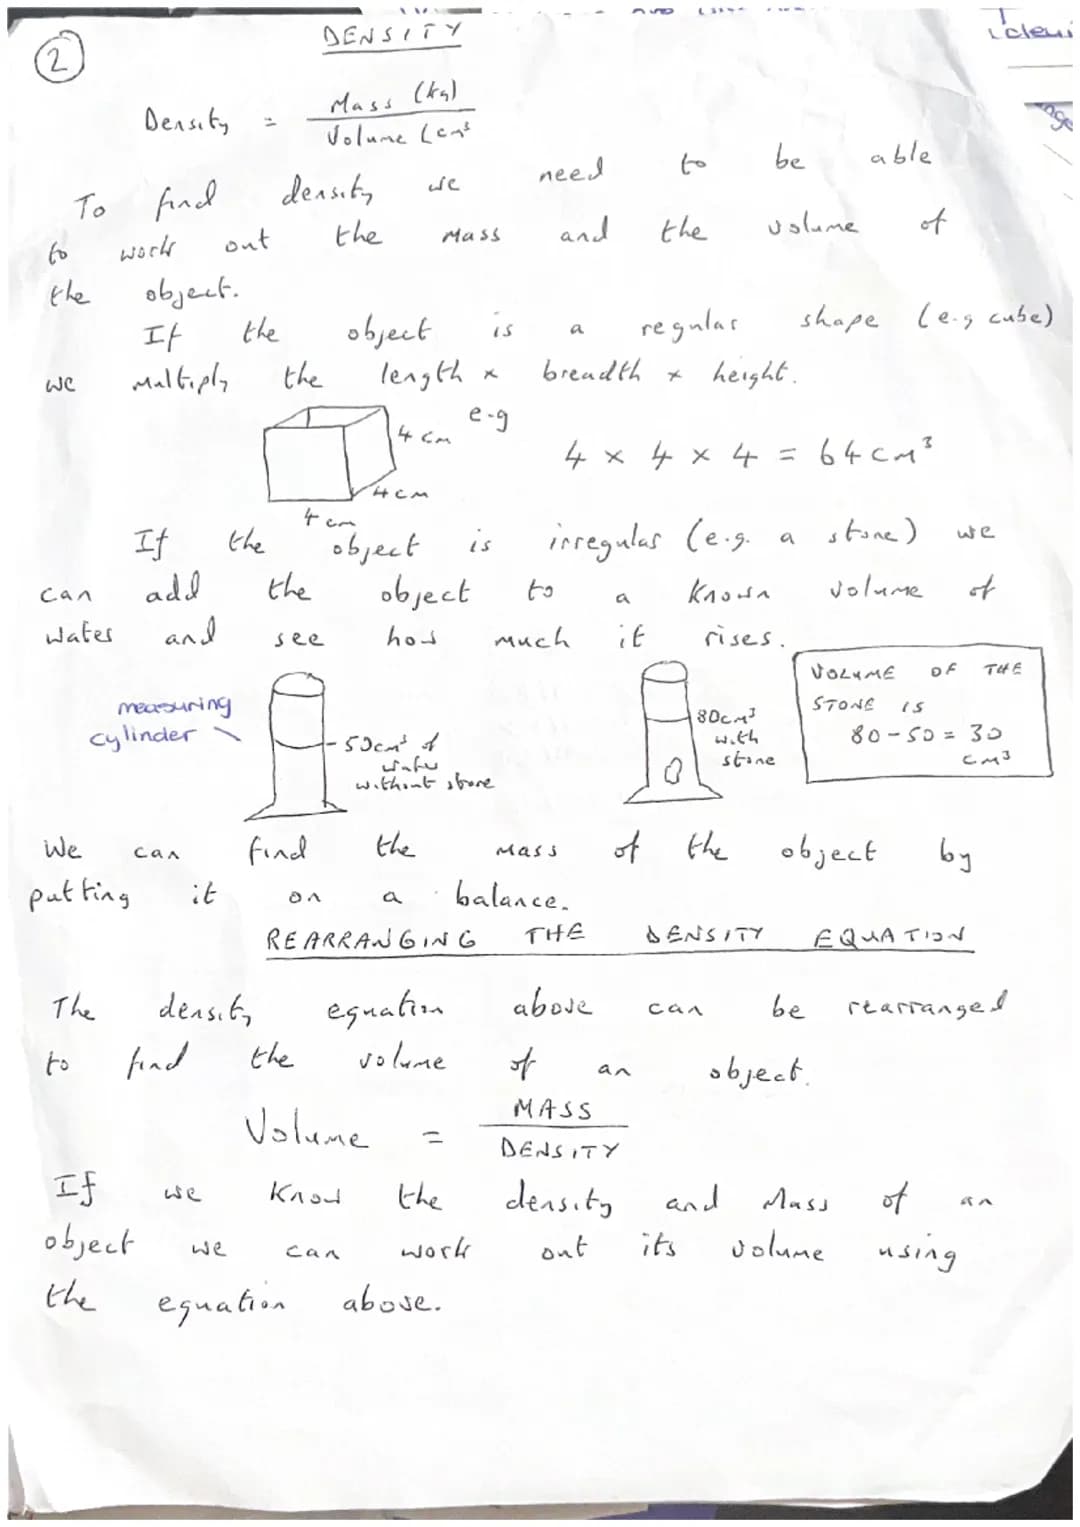 DENSITY
2
Density = Mass (kg)
Volume (cm³
To find density we need to be able
to work out the Mass and the volume of
the object.
If the object is a regular shape (e.g cube)
we Multiply the length x breadth x height.
e.g
4 cm
4 x 4 x 4 = 64cm³
4cm
4 cm
If the object is irregular (e.g. a stone) we
can add the object to a known volume of
water and see how much it rises.
measuring
cylinder
50cm³ of
water
without stone
80cm³
with
stone
VOLUME OF THE
STONE IS
80-50 = 30
cm³
We can find the Mass of the object by
putting it on a balance.
REARRANGING THE DENSITY EQUATION
The density equation above can be rearranged
to find the volume of an object.
Volume = MASS
DENSITY
If we know the density and Mass of an
object we can work out its volume using
the equation above.